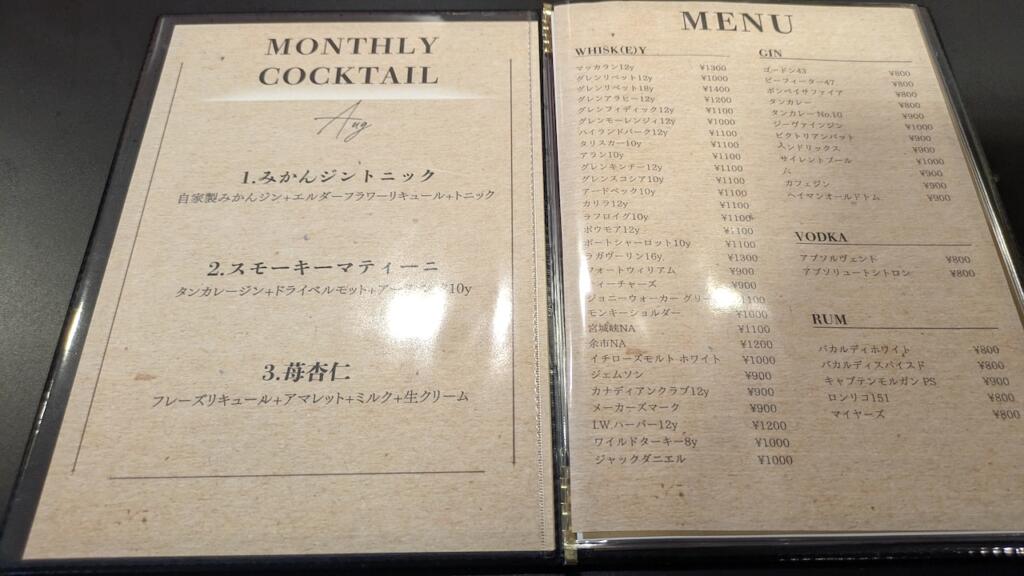 MONTHLY
COCKTAIL
Aug
1.みかんジントニック
自家製みかんジン+エルダーフラワーリキュール+トニック
2.スモーキーマティーニ
タンカレージン+ドライベルモット+アー 10y
3.苺杏仁
フレーズリキュール+アマレット+ミルク+生クリーム
MENU
WHISK(E)Y
マッカラン12y ¥1300
グレンリベット12y ¥1000
グレンリベット18y ¥1400
グレンアラヒー12y ¥1200
グレンフィディック12y ¥1100
グレンモーレンジィ12y ¥1000
ハイランドパーク12y ¥1100
タリスカー10y ¥1100
アラン10y ¥1100
グレンキンチー12y ¥1100
グレンスコシア10y ¥1100
アードベック10y ¥1100
カリラ12y ¥1100
ラフロイグ10y ¥1100
ボウモア12y ¥1100
ポートシャーロット10y ¥1100
ラガヴーリン16y ¥1300
フォートウィリアム ¥900
ティーチャーズ ¥900
ジョニーウォーカー グリー 1100
モンキーショルダー ¥1000
宮城峡NA ¥1100
余市NA ¥1200
イチローズモルト ホワイト ¥1000
ジェムソン ¥900
カナディアンクラブ12y ¥900
メーカーズマーク ¥900
I.W.ハーパー12y ¥1200
ワイルドターキー8y ¥1000
ジャックダニエル ¥1000
GIN
ゴードン43 ¥800
ビーフィーター47 ¥800
ボンベイサファイア ¥800
タンカレー ¥800
タンカレーNo.10 ¥900
ジーヴァインジン ¥1000
ビクトリアンバット ¥900
ヘンドリックス ¥900
サイレントプール ¥1000
六 ¥900
カフェジン ¥900
ヘイマンオールドトム ¥900
VODKA
アブソルヴェント ¥800
アブソリュートシトロン ¥800
RUM
バカルディホワイト ¥800
バカルディスパイスド ¥800
キャプテンモルガン PS ¥900
ロンリコ151 ¥800
マイヤーズ ¥800